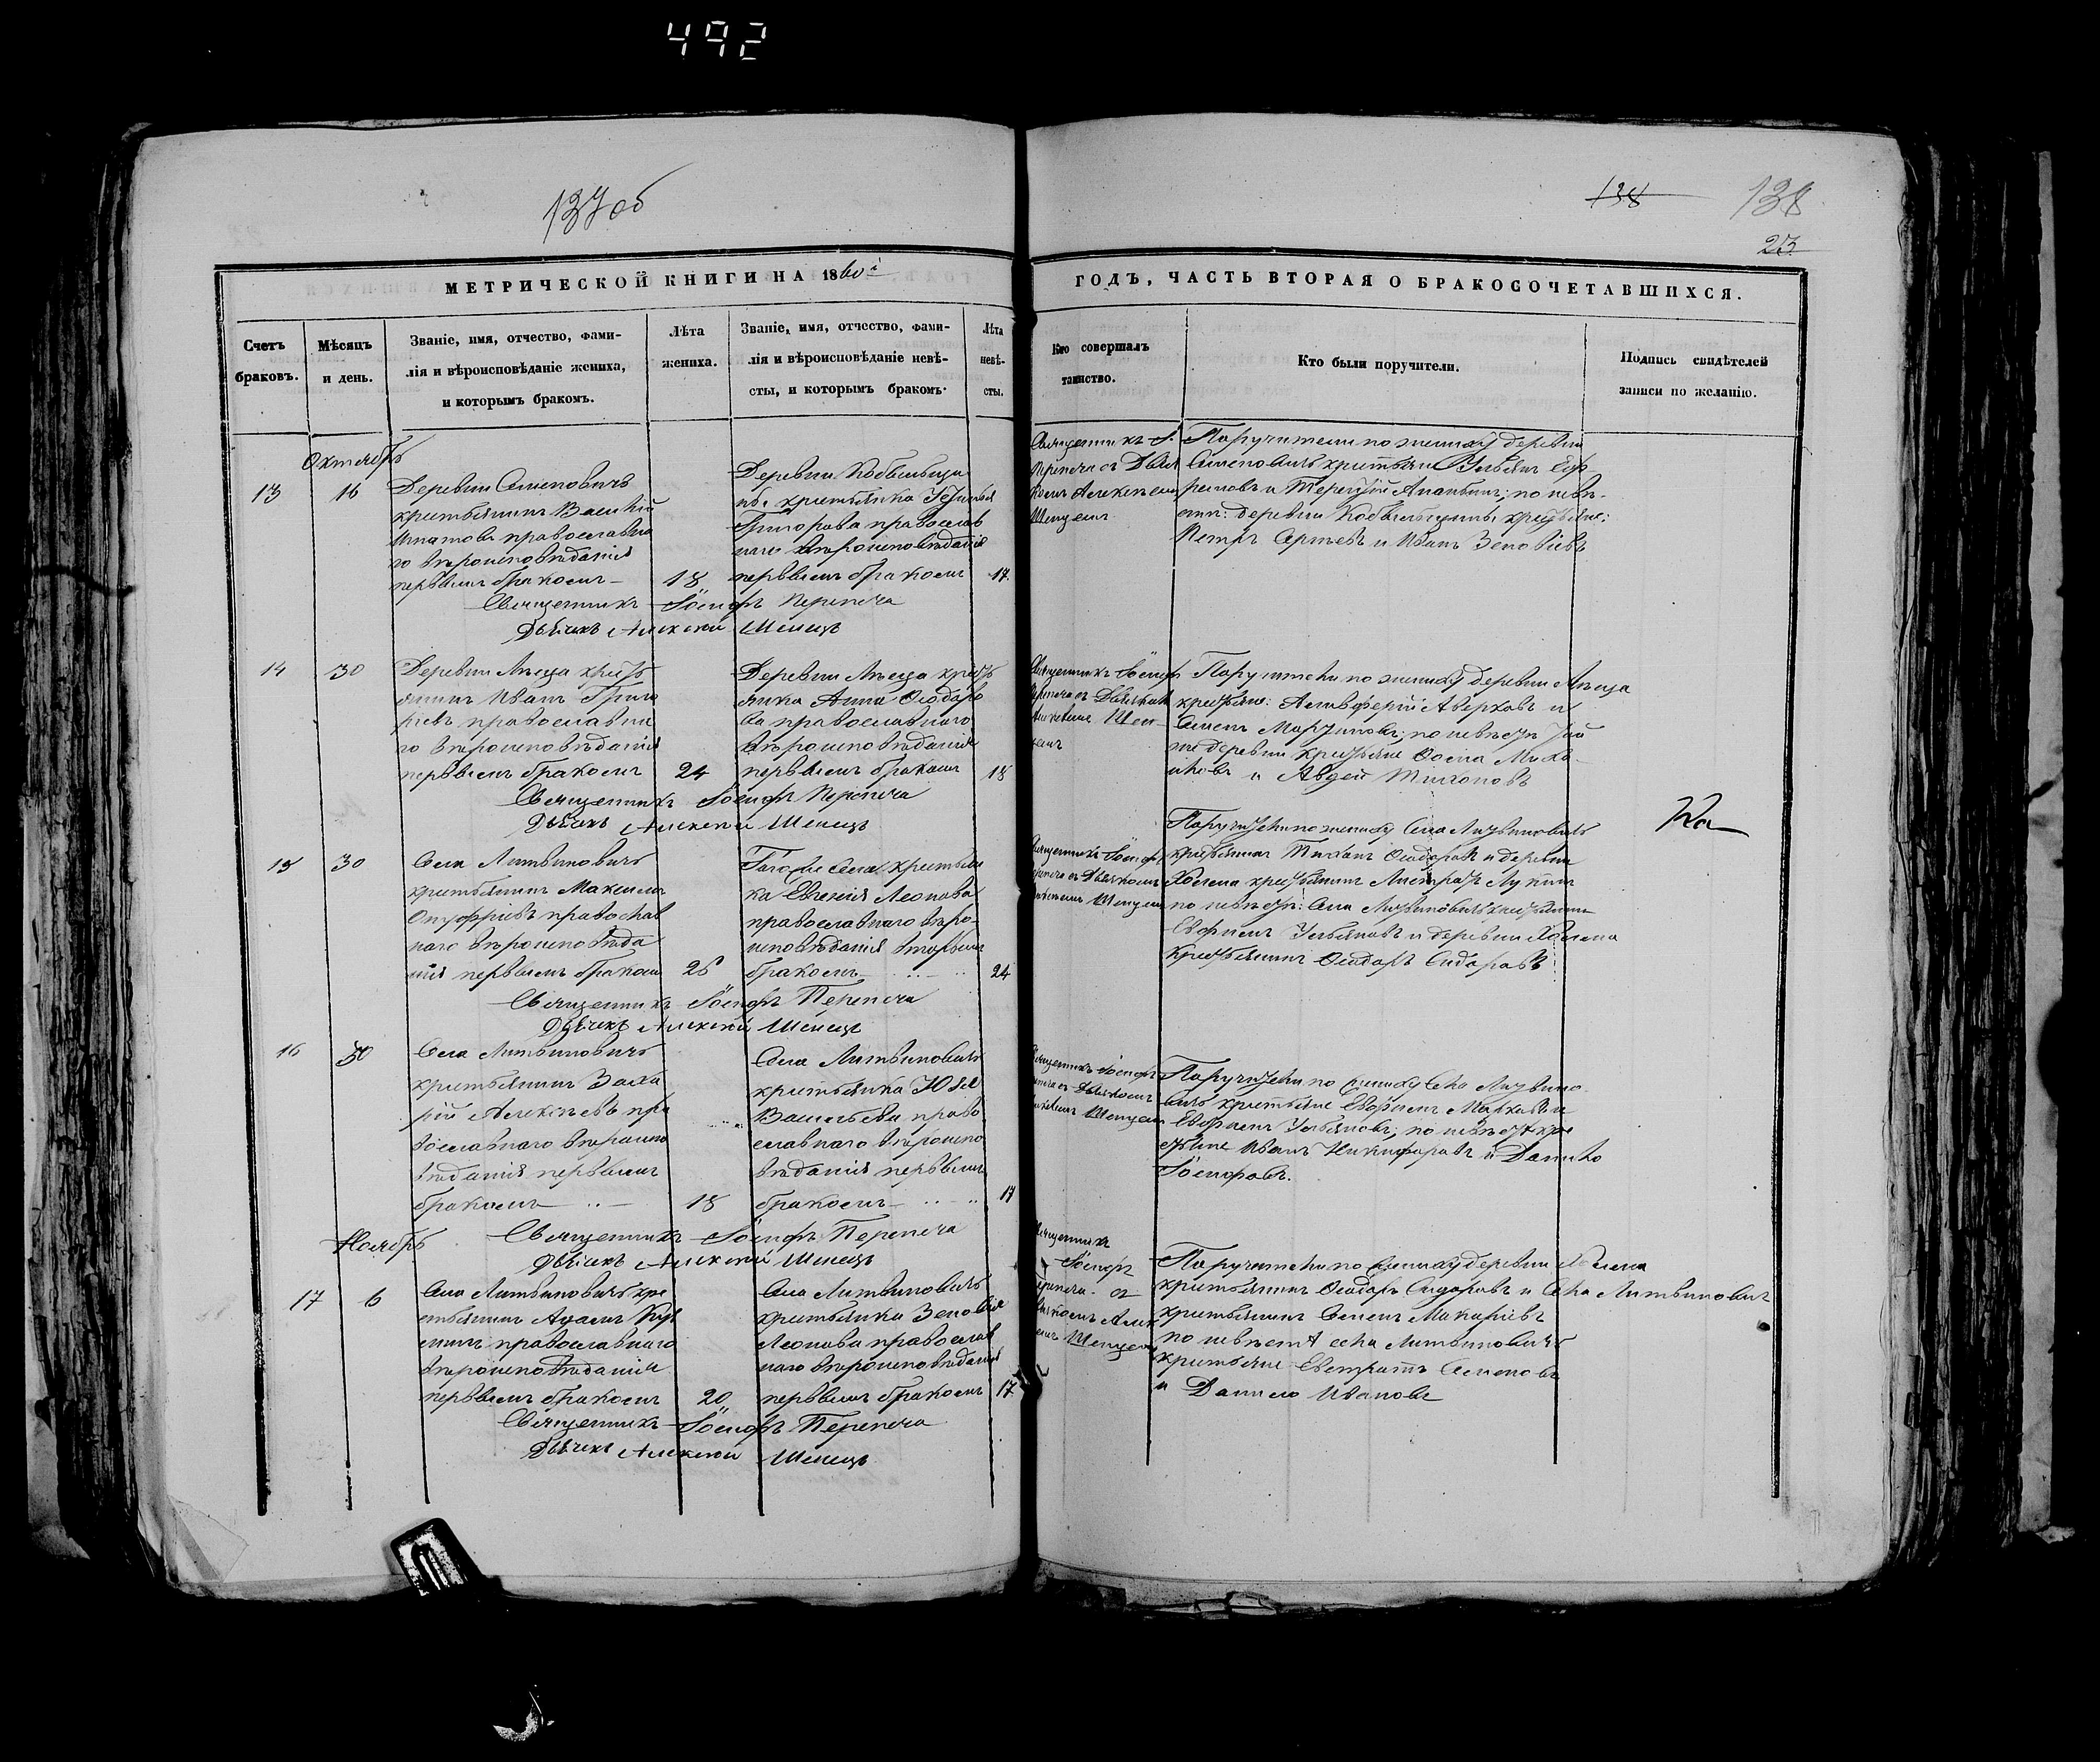 492
137 об
138
138
23
МЕТРИЧЕСКОЙ КНИГИ НА 1860й
ГОДЪ, ЧАСТЬ ВТОРАЯ О БРАКОСОЧЕТАВШИХСЯ.
Счетъ
браковъ.
Мѣсяцъ
и день.
Званіе, имя, отчество, фами-
лія и вѣроисповѣданіе жениха,
и которымъ бракомъ.
Лѣта
жениха.
Званіе, имя, отчество, фами-
лія и вѣроисповѣданіе невѣ-
сты, и которымъ бракомъ.
Лѣта
невѣ-
сты.
Кто совершалъ
таинство.
Кто были поручители.
Подпись свидѣтелей
записи по желанію.
Октябрь
13
16
Деревни Семеновичь
крестьянинъ Василій
Игнатовъ православна
го вѣроисповѣданія
первымъ бракомъ
18
Деревни Кобыльщи
ны крестьянка
Григорова православ
наго вѣроисповѣданія
первымъ бракомъ
17.
Священникъ І.
Перепеча съ Дьяч
комъ Алексѣемъ
Шенцемъ
Поручители по жениху деревни
Семеновичь крестьяни Ульянъ Еф
ремовъ и Терентій Ананьинъ; по невѣ-
стѣ: деревни Кобыльщины крестьяне:
Петръ Сергеевъ и Иванъ Зеновіевъ
Священникъ Іосифъ Перепеча
Дьячекъ Алексѣй Шенецъ
14
30
Деревни Лѣща кресть
янинъ Иванъ Григо
ріевъ православна
го вѣроисповѣданія
первымъ бракомъ
24
Деревни Лѣща кресть
янка Анна Ѳеодоро
ва православнаго
вѣроисповѣданія
первымъ бракомъ
18
Священникъ Іосифъ
Перепеча съ Дьячкомъ
Алексѣемъ Шен-
цемъ
Поручители по жениху деревни Лѣща
крестьяне: Аверковъ и
Семенъ Мартиновъ; по невѣстѣ той
же деревни крестьяне Ѳома Миха-
йловъ и Авдей Тихоновъ
Священникъ Іосифъ Перепеча
Дьячекъ Алексѣй Шенецъ
15
30
Села Литвиновичь
крестьянинъ Максимъ
Онуфріевъ православ
наго вѣроисповѣда
нія первымъ бракомъ
26
Тагоже села крестьян
ка Евгенія Леонова
православнаго вѣро-
исповѣданія вторымъ
бракомъ
24
Священникъ Іосифъ
Перепеча съ Дьячкомъ
Алексѣемъ Шенцемъ
Поручители по жениху Села Литвиновичь
крестьянинъ Тихонъ Ѳеодоровъ и деревни
Холмеча крестьянинъ Лукинъ
по невѣстѣ: Села Литвиновичь крестьянинъ
Евфимъ Ульяновъ и деревни
крестьянинъ Ѳеодоръ Сидоровъ
Священникъ Іосифъ Перепеча
Дьячекъ Алексѣй Шенецъ
16
30
Села Литвиновичь
крестьянинъ Заха
рій Алексѣевъ пра
вославнаго вѣроиспо
вѣданія первымъ
бракомъ
18
Села Литвиновичь
крестьянка
Васильева право
славнаго вѣроиспо
вѣданія первымъ
бракомъ
17
Священникъ Іосифъ
Перепеча съ Дьячкомъ
Алексѣемъ Шенцемъ
Поручители по жениху Села Литвино-
вичь крестьяне Евфимъ Марковъ и
Евфимъ Ульяновъ; по невѣстѣ кре
стьяне Иванъ Никифоровъ и Данило
Іосифовъ.
Священникъ Іосифъ Перепеча
Дьячекъ Алексѣй Шенецъ
Ноябрь
17
6
Села Литвиновичь кре
стьянинъ Адамъ
православнаго
вѣроисповѣданія
первымъ бракомъ
20
Села Литвиновичь
крестьянка Зеновія
Леонова православ
наго вѣроисповѣданія
первымъ бракомъ
17
Священникъ
Іосифъ
Перепеча съ
Дьячкомъ Алек
сѣемъ Шенцемъ
Поручители по жениху деревни
крестьянинъ Ѳеодоръ Сидоровъ и Села Литвиновичь
крестьянинъ Семенъ Макаріевъ
по невѣстѣ села Литвиновичь
крестьяне Евстратъ Семеновъ
и Данило Ивановъ
Священникъ Іосифъ Перепеча
Дьячекъ Алексѣй Шенецъ